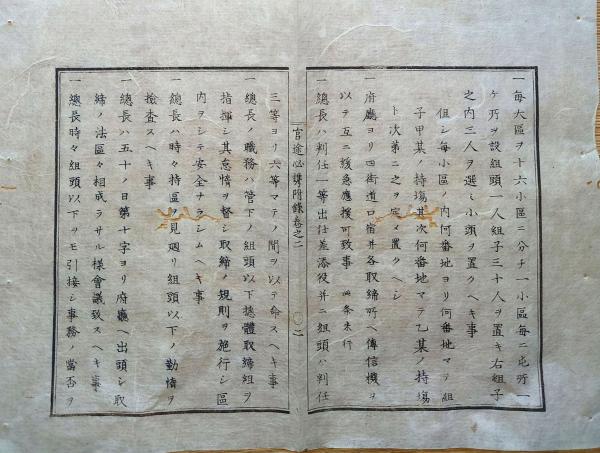 一 每大區ヲ十六小區ニ分チ一小區每ニ屯所一
ケ所ヲ設組頭一人組子三十人ヲ置キ右組子
之内三人ヲ選ミ小頭ヲ置クヘキ事
但シ每小區ノ内何番地ヨリ何番地マテ組
子甲某ノ持場其次何番地マテ乙某ノ持場
ト次第ニ之ヲ定メ置クヘシ
一 府廳ヨリ四街道口宿并各取締所ヘ傳信機ヲ
以テ互ニ援急應援可致事 此条未行
一 總長ハ判任一等出仕差添役并ニ組頭ハ判任
官途必携附錄卷之二 〇二
三等ヨリ六等マテノ間ヲ以テ命スヘキ事
一 總長ノ職務ハ管下ノ組頭以下總體取締組ヲ
指揮シ其怠惰ヲ督シ取締ノ規則ヲ施行シ區
内ヲシテ安全ナラシムヘキ事
一 總長ハ時々持區ヲ見廻リ組頭以下ノ勤惰ヲ
撿査スヘキ事
一 總長ハ五十ノ日第十字ヨリ府廳ヘ出頭シ取
締ノ法區々相成ラサル様會議致スヘキ事
一 總長時々組頭以下ヲモ引接シ事務ノ當否ヲ